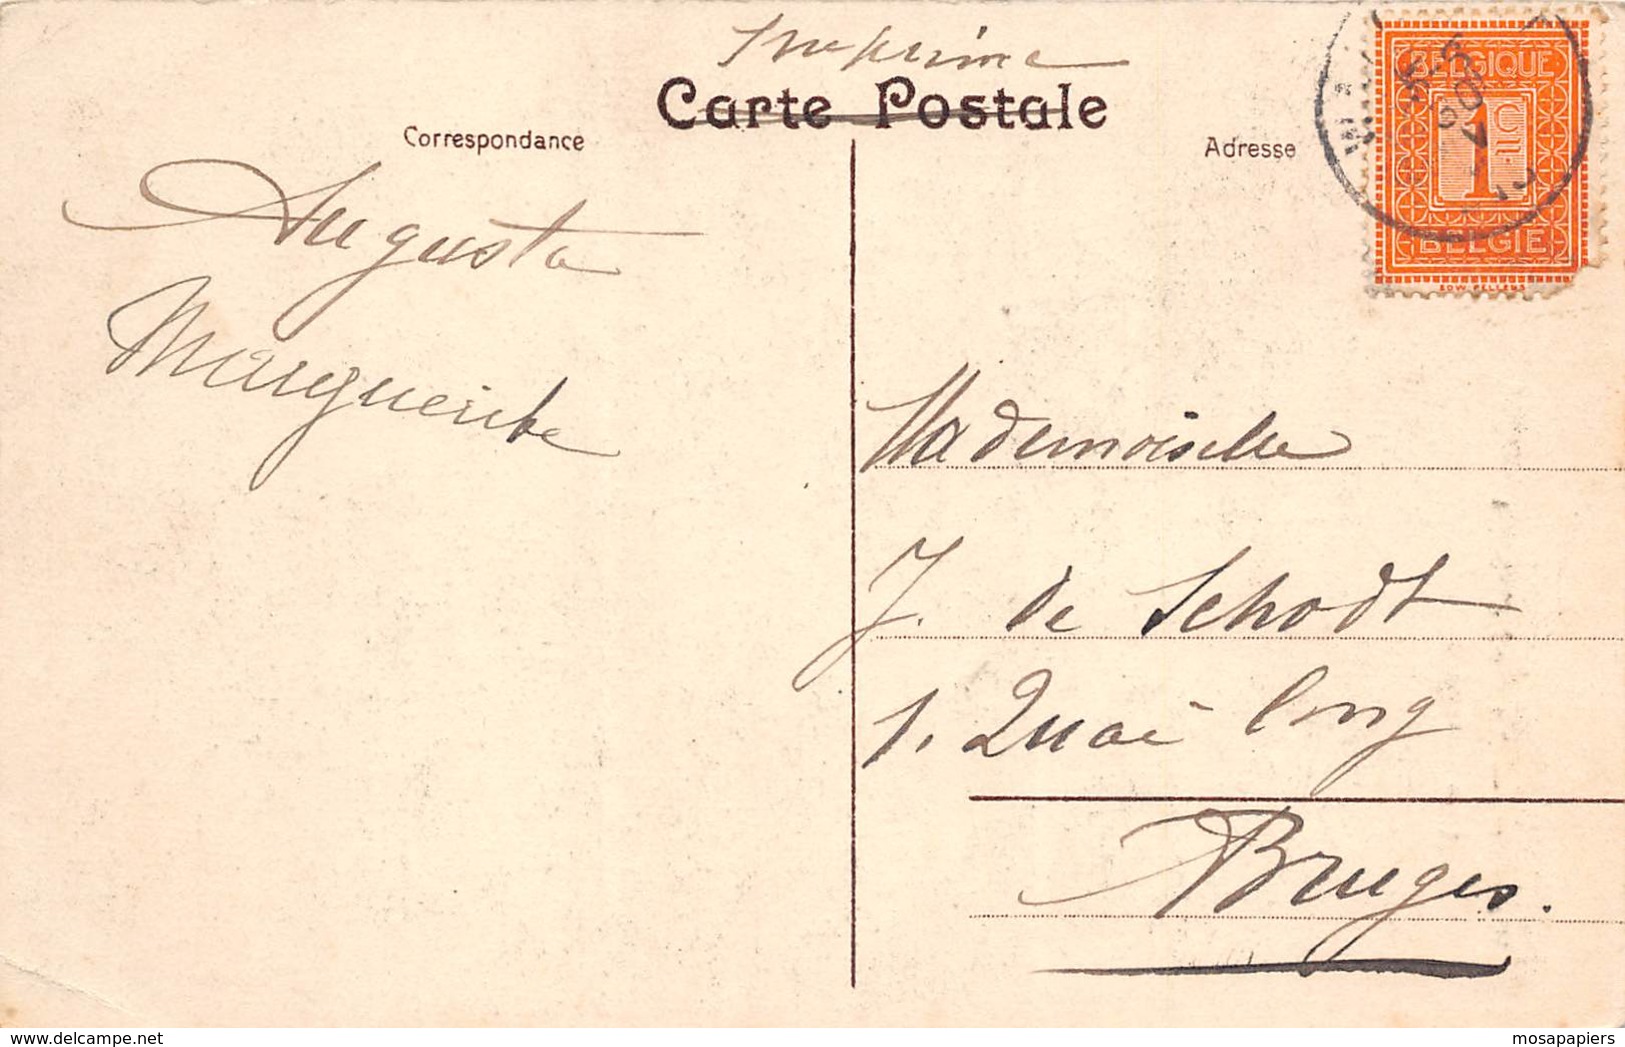 Imprimé
Carte Postale
Correspondance
Adresse
BELGIQUE
1 CT.
BELGIE
SOW. PELLENS
Augusta
Marguerite
Mademoiselle
J. de Schodt
1. Quai long
Bruges.
mosapapiers